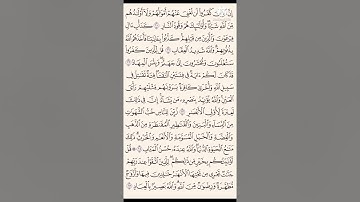 إِنَّ ٱلَّذِينَ كَفَرُوا۟ لَن تُغْنِىَ عَنْهُمْ أَمْوَٰلُهُمْ وَلَآ أَوْلَٰدُهُم
مِّنَ ٱللَّهِ شَيْـًٔا وَأُو۟لَٰٓئِكَ هُمْ وَقُودُ ٱلنَّارِ ١٠ كَدَأْبِ ءَالِ
فِرْعَوْنَ وَٱلَّذِينَ مِن قَبْلِهِمْ كَذَّبُوا۟ بِـَٔايَٰتِنَا فَأَخَذَهُمُ ٱللَّهُ
بِذُنُوبِهِمْ وَٱللَّهُ شَدِيدُ ٱلْعِقَابِ ١١ قُل لِّلَّذِينَ كَفَرُوا۟
سَتُغْلَبُونَ وَتُحْشَرُونَ إِلَىٰ جَهَنَّمَ وَبِئْسَ ٱلْمِهَادُ ١٢
قَدْ كَانَ لَكُمْ ءَايَةٌ فِى فِئَتَيْنِ ٱلْتَقَتَا فِئَةٌ تُقَٰتِلُ فِى
سَبِيلِ ٱللَّهِ وَأُخْرَىٰ كَافِرَةٌ يَرَوْنَهُم مِّثْلَيْهِمْ رَأْىَ
ٱلْعَيْنِ وَٱللَّهُ يُؤَيِّدُ بِنَصْرِهِۦ مَن يَشَآءُ إِنَّ فِى ذَٰلِكَ
لَعِبْرَةً لِّأُو۟لِى ٱلْأَبْصَٰرِ ١٣ زُيِّنَ لِلنَّاسِ حُبُّ ٱلشَّهَوَٰتِ
مِنَ ٱلنِّسَآءِ وَٱلْبَنِينَ وَٱلْقَنَٰطِيرِ ٱلْمُقَنطَرَةِ مِنَ ٱلذَّهَبِ
وَٱلْفِضَّةِ وَٱلْخَيْلِ ٱلْمُسَوَّمَةِ وَٱلْأَنْعَٰمِ وَٱلْحَرْثِ ذَٰلِكَ
مَتَٰعُ ٱلْحَيَوٰةِ ٱلدُّنْيَا وَٱللَّهُ عِندَهُۥ حُسْنُ ٱلْمَـَٔابِ ١٤ قُلْ
أَؤُنَبِّئُكُم بِخَيْرٍ مِّن ذَٰلِكُمْ لِلَّذِينَ ٱتَّقَوْا۟ عِندَ رَبِّهِمْ
جَنَّٰتٌ تَجْرِى مِن تَحْتِهَا ٱلْأَنْهَٰرُ خَٰلِدِينَ فِيهَا وَأَزْوَٰجٌ
مُّطَهَّرَةٌ وَرِضْوَٰنٌ مِّنَ ٱللَّهِ وَٱللَّهُ بَصِيرٌۢ بِٱلْعِبَادِ ١٥